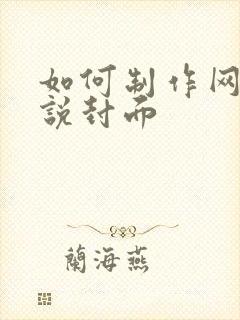 如何制作网
説封面
蘭海燕